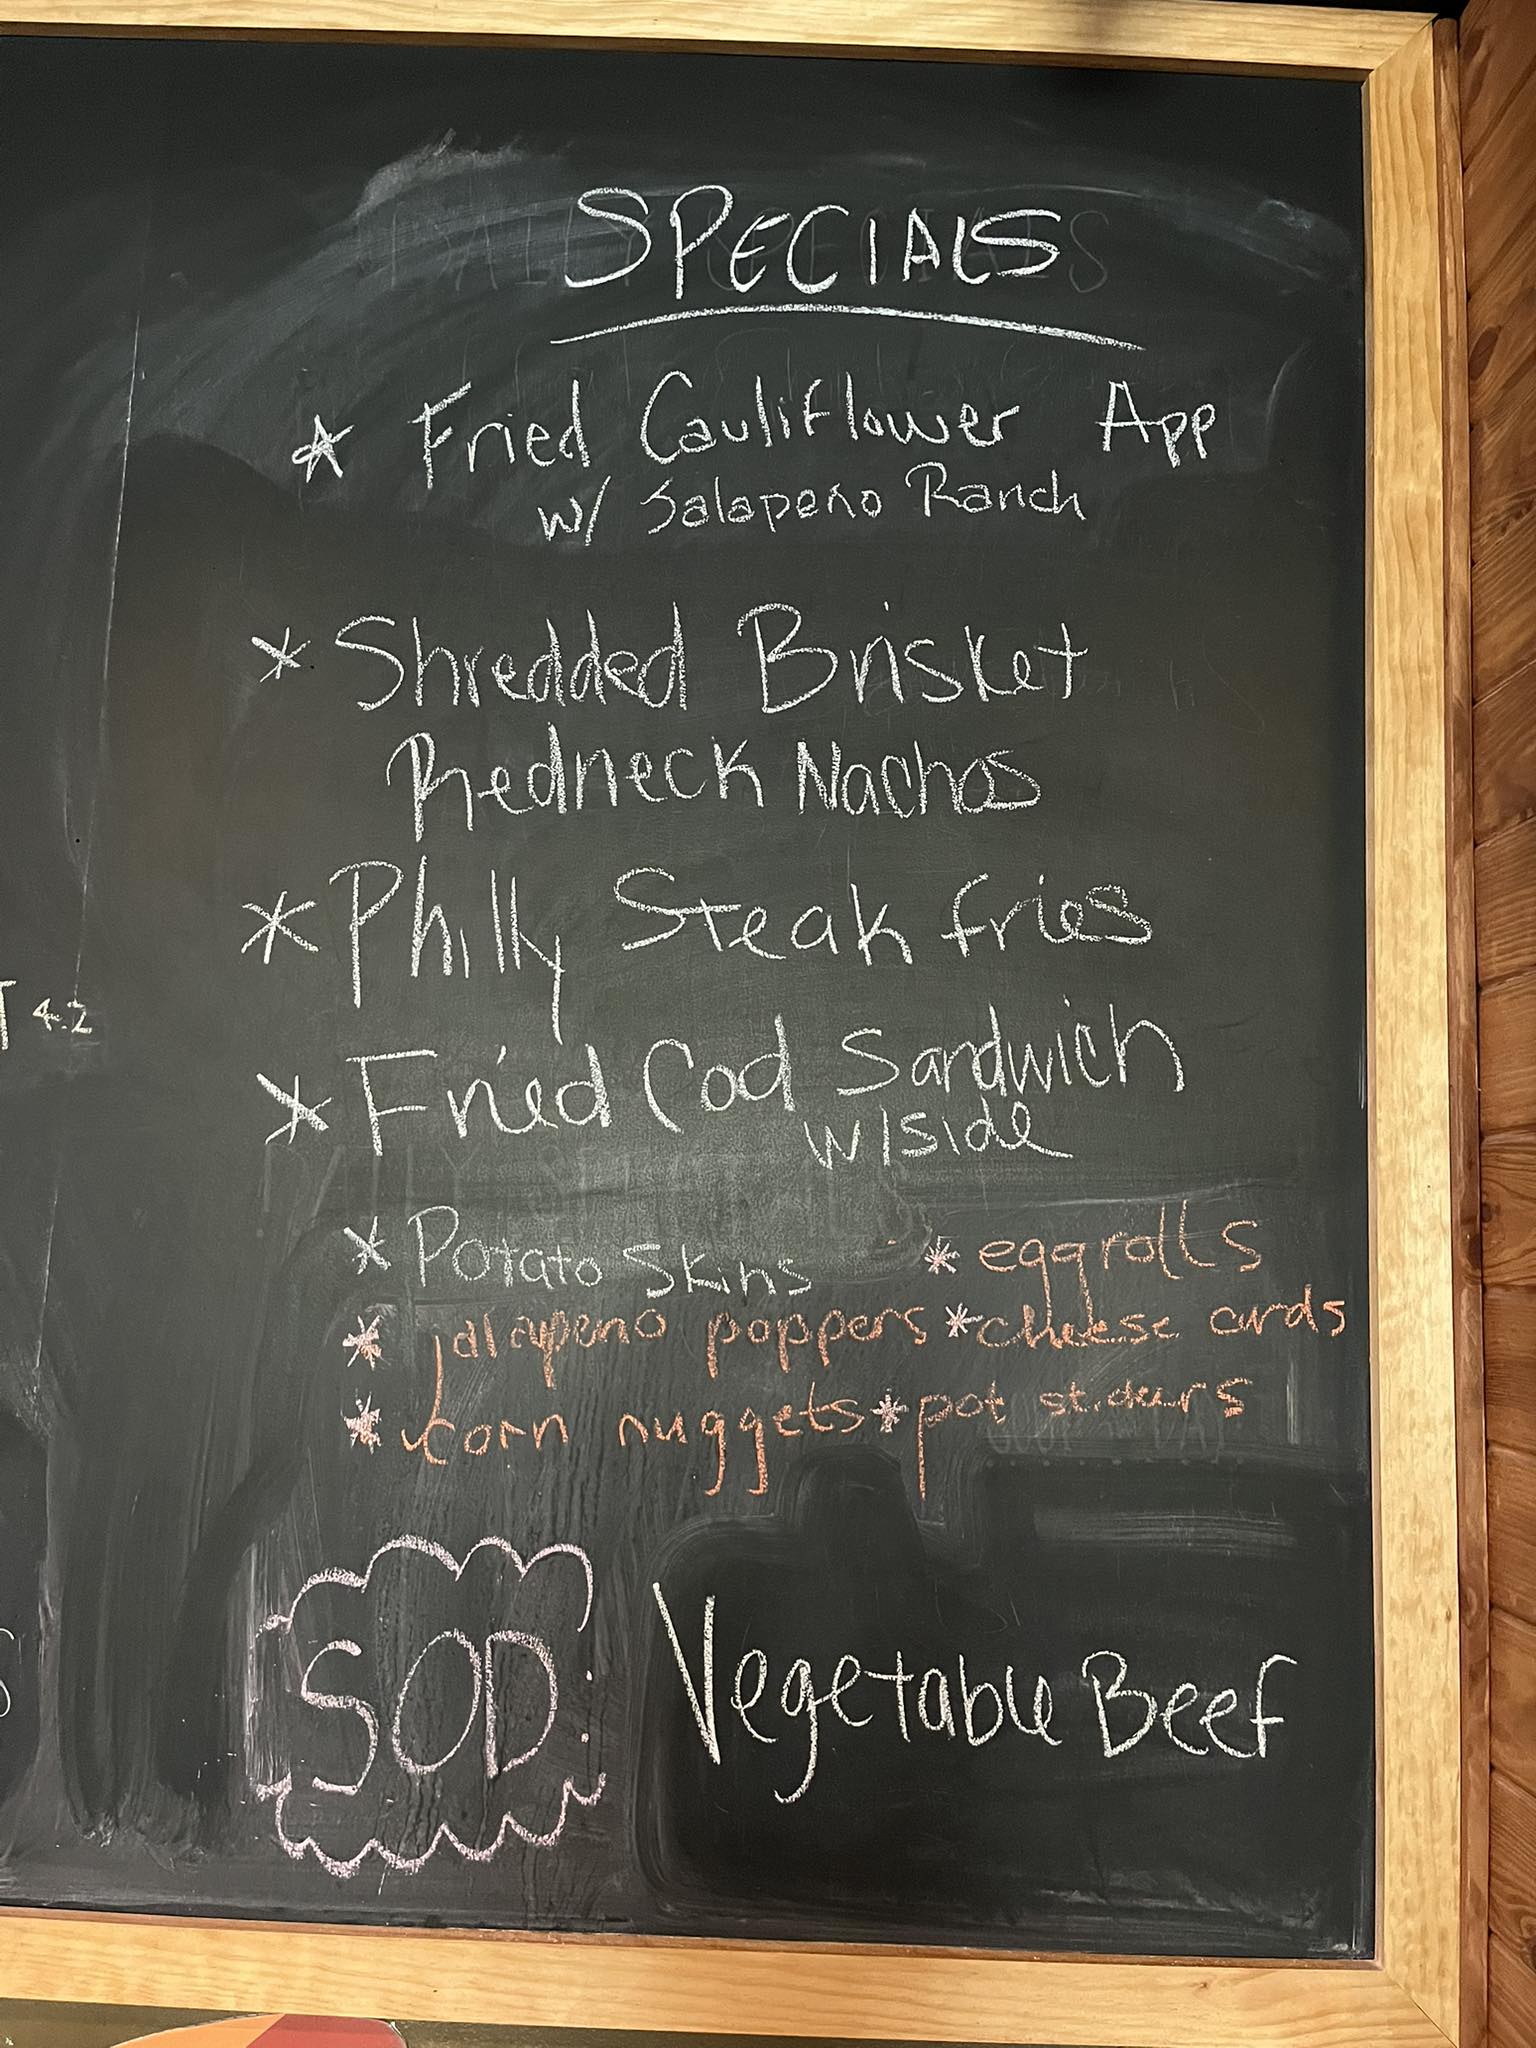 SPECIALS
* Fried Cauliflower App
w/ Jalapeno Ranch
* Shredded Brisket
Redneck Nachos
* Philly Steak fries
* Fried Cod Sandwich
w/side
* Potato Skins * eggrolls
* jalapeno poppers * cheese curds
* corn nuggets * pot stickers
SOD: Vegetable Beef
T 4.2